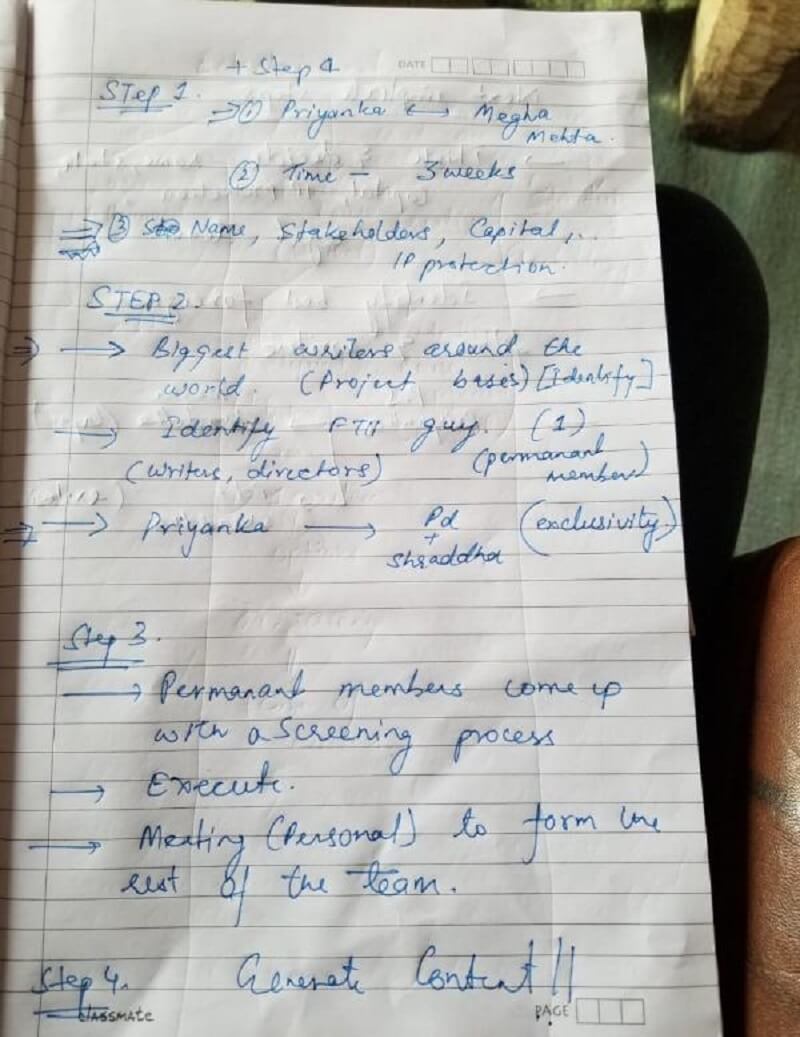 + Step 4
DATE
STep 1.
⇒ ① Priyanka ↔ Megha
Mehta.
② Time — 3 weeks
⇒ ③ Name, Stakeholders, Capital,..
IP protection.
STEP 2.
⇒ → Biggest writers around the
world. (Project basis) [Identify]
→ Identify FTII guy. (1)
(writers, directors) (permanant
member)
⇒ → Priyanka → Pd (exclusivity)
+
Shraddha
Step 3.
→ Permanant members come up
with a Screening process
→ Execute.
→ Meeting (Personal) to form the
rest of the Team.
Step 4. Generate Content!!
CLASSMATE
PAGE